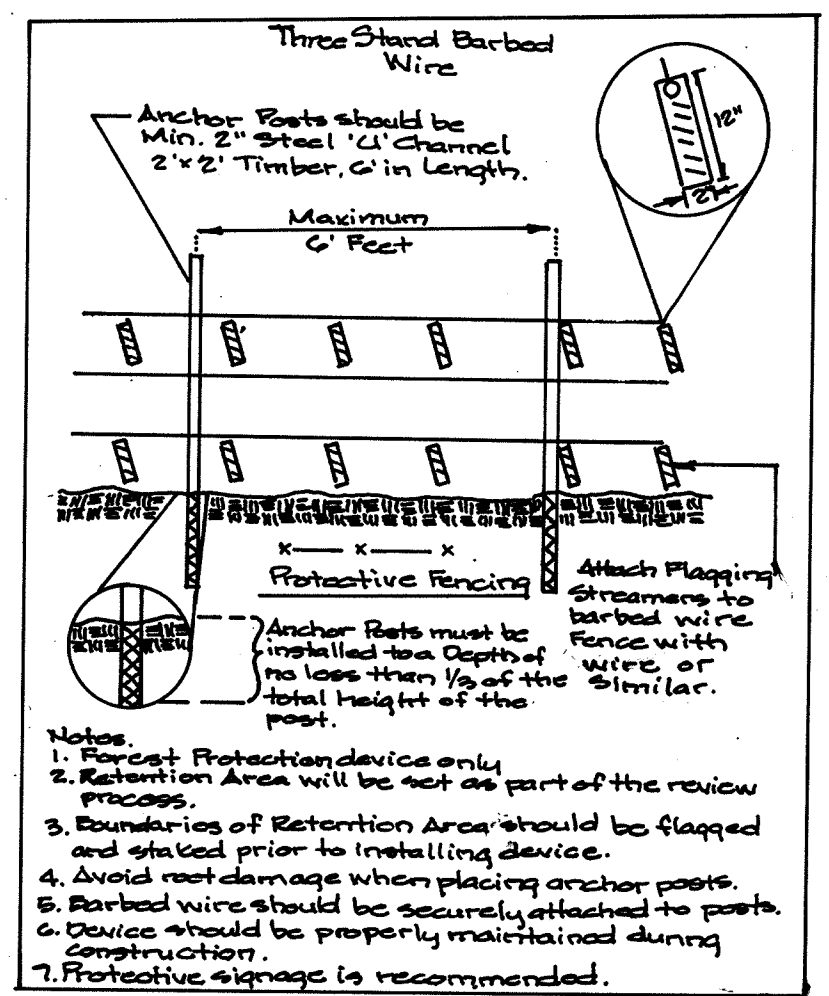 Three Stand Barbed
Wire
Anchor Posts should be
Min. 2" Steel 'U' Channel
2'x2' Timber, 6' in Length.
12"
2"
Maximum
6' Feet
x — x — x
Protective Fencing
Attach Flagging
Streamers to
barbed wire
Fence with
wire or
Similar.
Anchor Posts must be
installed to a Depth of
no less than 1/3 of the
total height of the
post.
Notes.
1. Forest Protection device only
2. Retention Area will be set as part of the review
process.
3. Boundaries of Retention Area should be flagged
and staked prior to installing device.
4. Avoid root damage when placing anchor posts.
5. Barbed wire should be securely attached to posts.
6. Device should be properly maintained during
construction.
7. Protective signage is recommended.